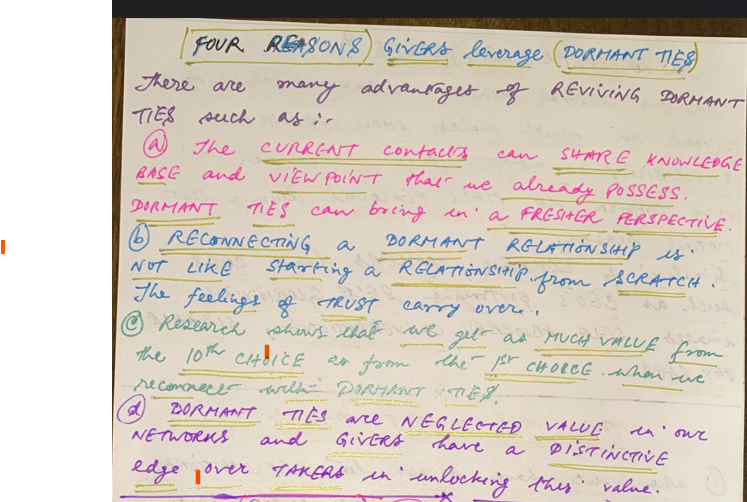 FOUR REASONS GIVERS leverage (DORMANT TIES)
There are many advantages of REVIVING DORMANT
TIES such as :-
(a) The CURRENT contacts can SHARE KNOWLEDGE
BASE and VIEWPOINT that we already POSSESS.
DORMANT TIES can bring in a FRESHER PERSPECTIVE.
(b) RECONNECTING a DORMANT RELATIONSHIP is
NOT LIKE starting a RELATIONSHIP from SCRATCH.
The feelings of TRUST carry over..
(c) Research shows that we get as MUCH VALUE from
the 10th CHOICE as from the 1st CHOICE when we
reconnect with DORMANT TIES.
(d) DORMANT TIES are NEGLECTED VALUE in our
NETWORKS and GIVERS have a DISTINCTIVE
edge over TAKERS in unlocking this value.